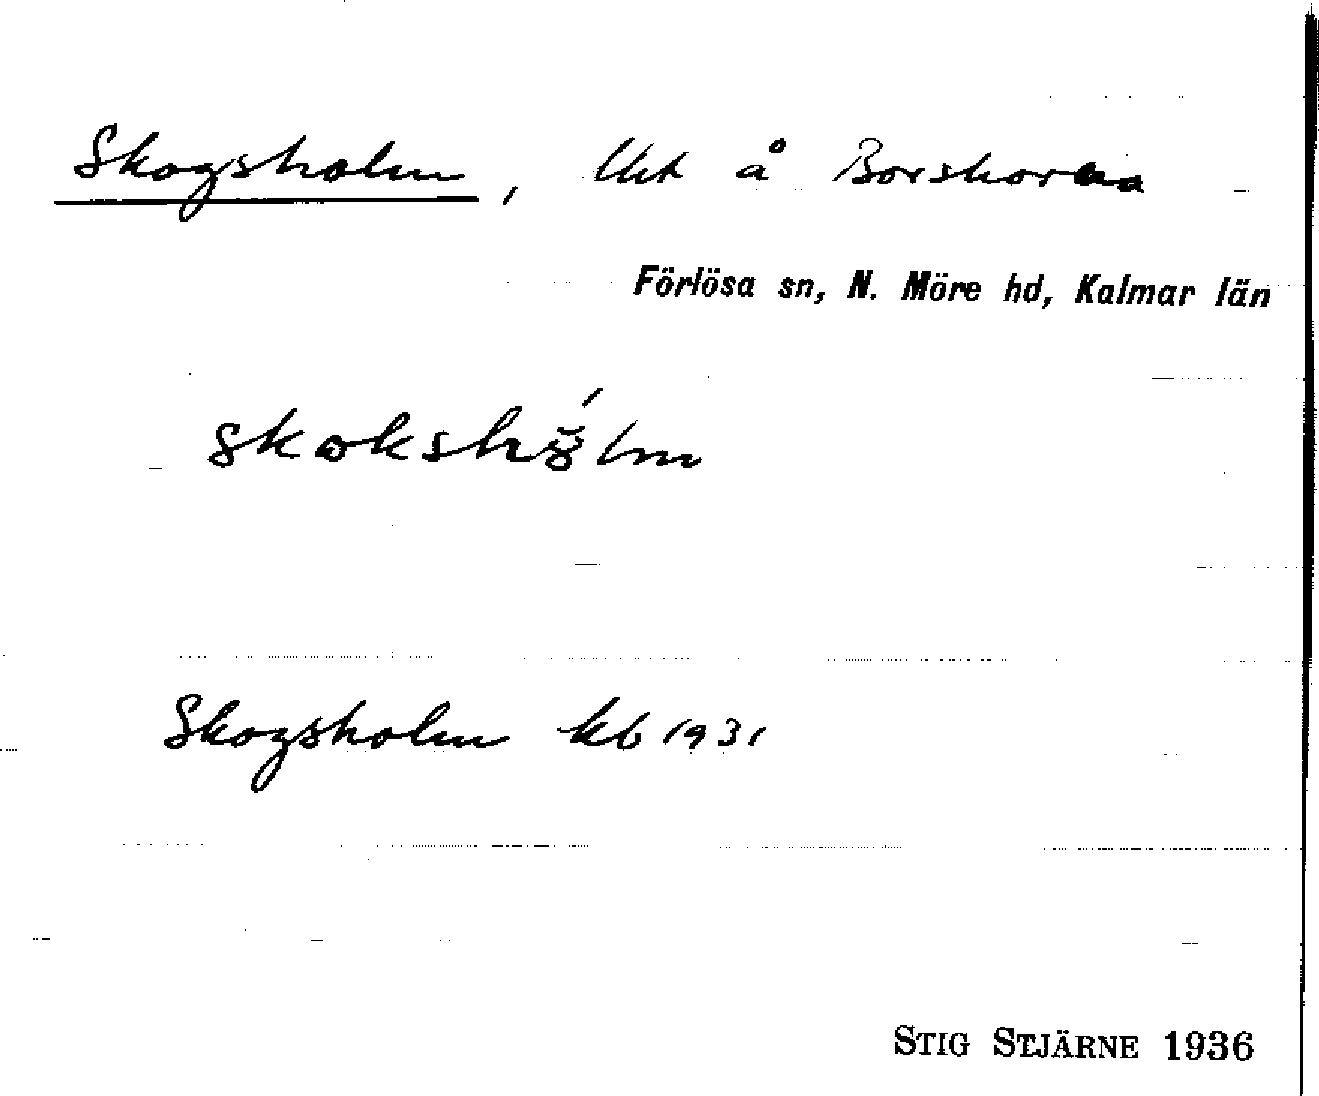 Skogsholm, Uct å Borshorna
Förlösa sn, N. Möre hd, Kalmar län
skokshólm
Skogsholm kb 1931
STIG STJÄRNE 1936